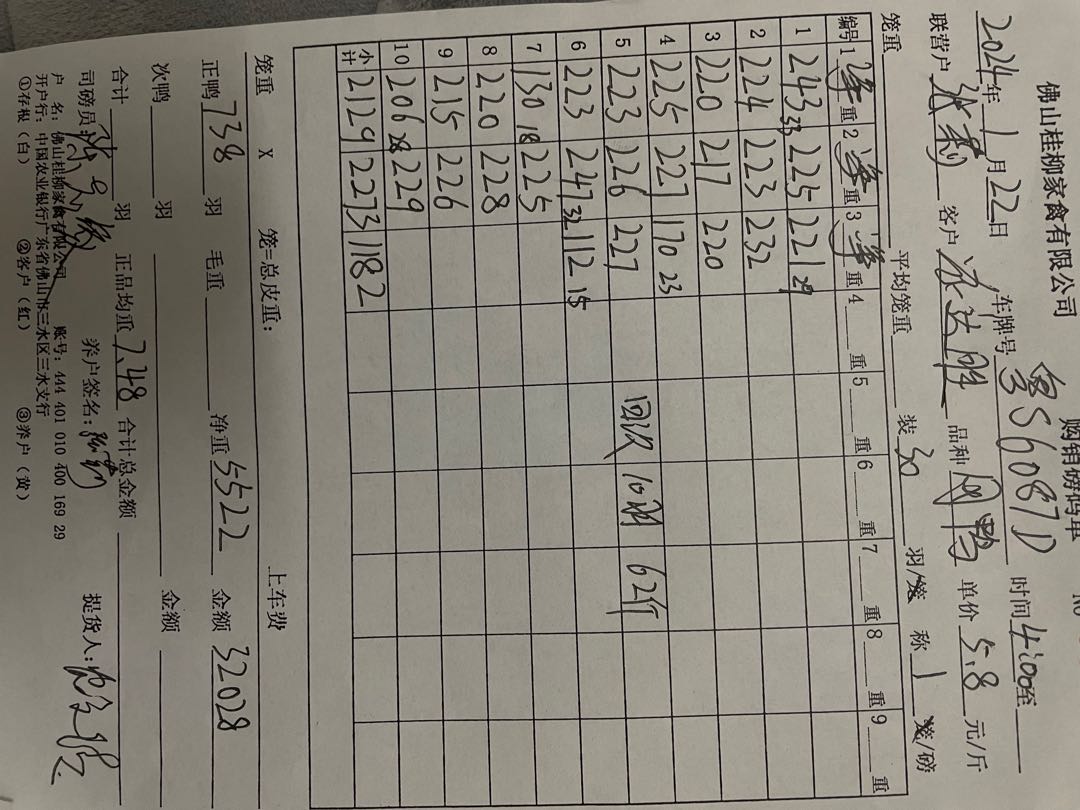 佛山桂柳家禽有限公司
购销磅码单
2024年1月22日 车牌号 S6087D 时间4:00至
联营户 客户 品种 单价5.8元/斤
笼重 平均笼重 装30羽/笼 称1笼/磅
编号 1 净重 2 净重 3 净重 4 重 5 重 6 重 7 重 8 重 9 重
1 243 33 225 221 29
2 224 223 232
3 220 217 220
4 225 227 170 23
5 223 226 227 回收 10羽 62斤
6 223 247 32 112 15
7 130 18 225
8 220 228
9 215 226
10 206 28 229
小计 2129 2273 1182
笼重 X 笼=总皮重: 上车费
正鸭738羽 毛重 净重5522 金额32028
次鸭 羽 金额
合计 羽 正品均重7.48 合计总金额
司磅员 养户签名: 提货人:
户 名: 佛山桂柳家禽有限公司 账号: 444 401 010 400 169 29
开户行: 中国农业银行广东省佛山市三水区三水支行
①存根(白) ②客户(红) ③养户(黄)